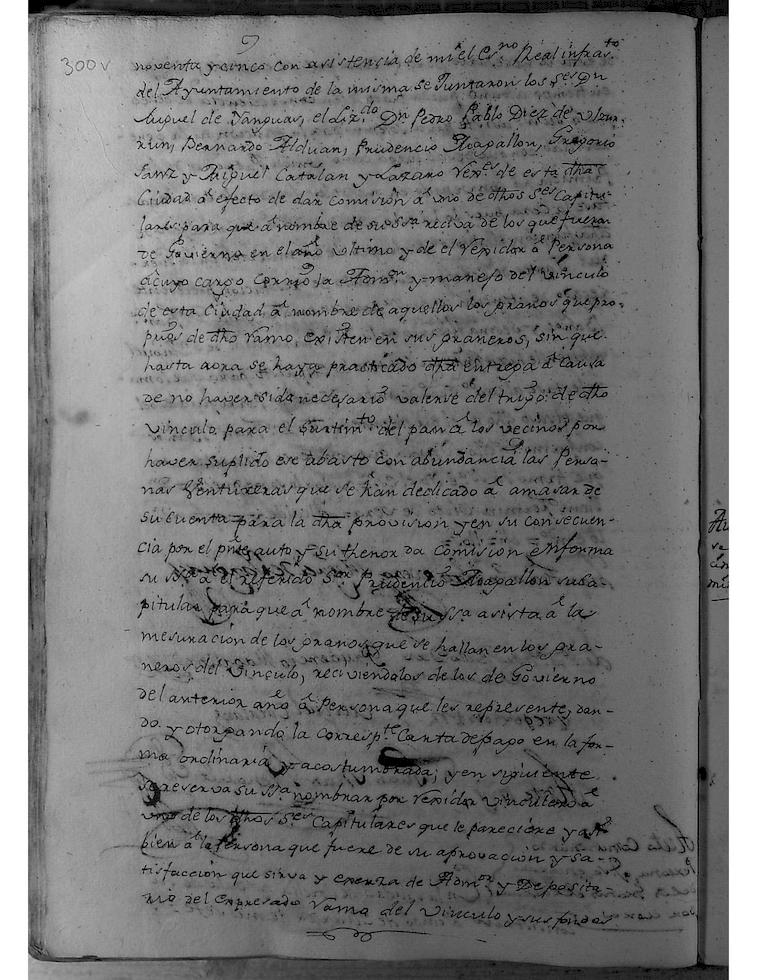 300v
noventa y cinco con asistencia de mi el Essno Real infrasto
del Ayuntamiento de la misma se Juntaron los Ses Dn
Miguel de Yanguas, el Lizdo Dn Pedro Pablo Diez de Ulzur-
run, Bernardo Alduan, Prudencio Agapallon, Gregorio
Sanz y Miguel Catalan y Lazaro Vexes de esta dha
Ciudad a efecto de dar Comision a uno de dhos Ses Capitu-
lares para que a nombre de su Ssa reciva de los que fueron
de Govierno en el año ultimo y de el Vexidor a Persona
a cuyo cargo corrio la Admon y manejo del vinculo
de esta Ciudad a nombre de aquellos los granos que pro-
pios de dho Vamo existen en sus graneros, sin que
hasta aora se haya practicado dha entrega a Causa
de no haver sido necesario valerse del trigo de dho
vinculo para el surtimto del pan a los vecinos por
haver suplido ese abasto con abundancia las Perso-
nas Ventureras que se han dedicado a amasar de
su cuenta para la dha provision y en su consecuen-
cia por el pnte auto y su thenor da Comision en forma
su Ssa a el referido Sor Prudencio Agapallon su Ca-
pitular para que a nombre de su Ssa asista a la
mesuracion de los granos que se hallan en los gra-
neros del Vinculo, reciviendolos de los de Govierno
del anterior año a Persona que les represente, dan-
do y otorgando la Correspte Carta de pago en la for-
ma ordinaria y acostumbrada, y en siguiente
se reserva su Ssa nombrar por Vexidor vinculero a
uno de los dhos Ses Capitulares que le pareciere y assi
bien a la Persona que fuere de su aprovacion y sa-
tisfaccion que sirva y exerza de Admor y Deposita-
rio del expresado Vamo del Vinculo y sus fondos